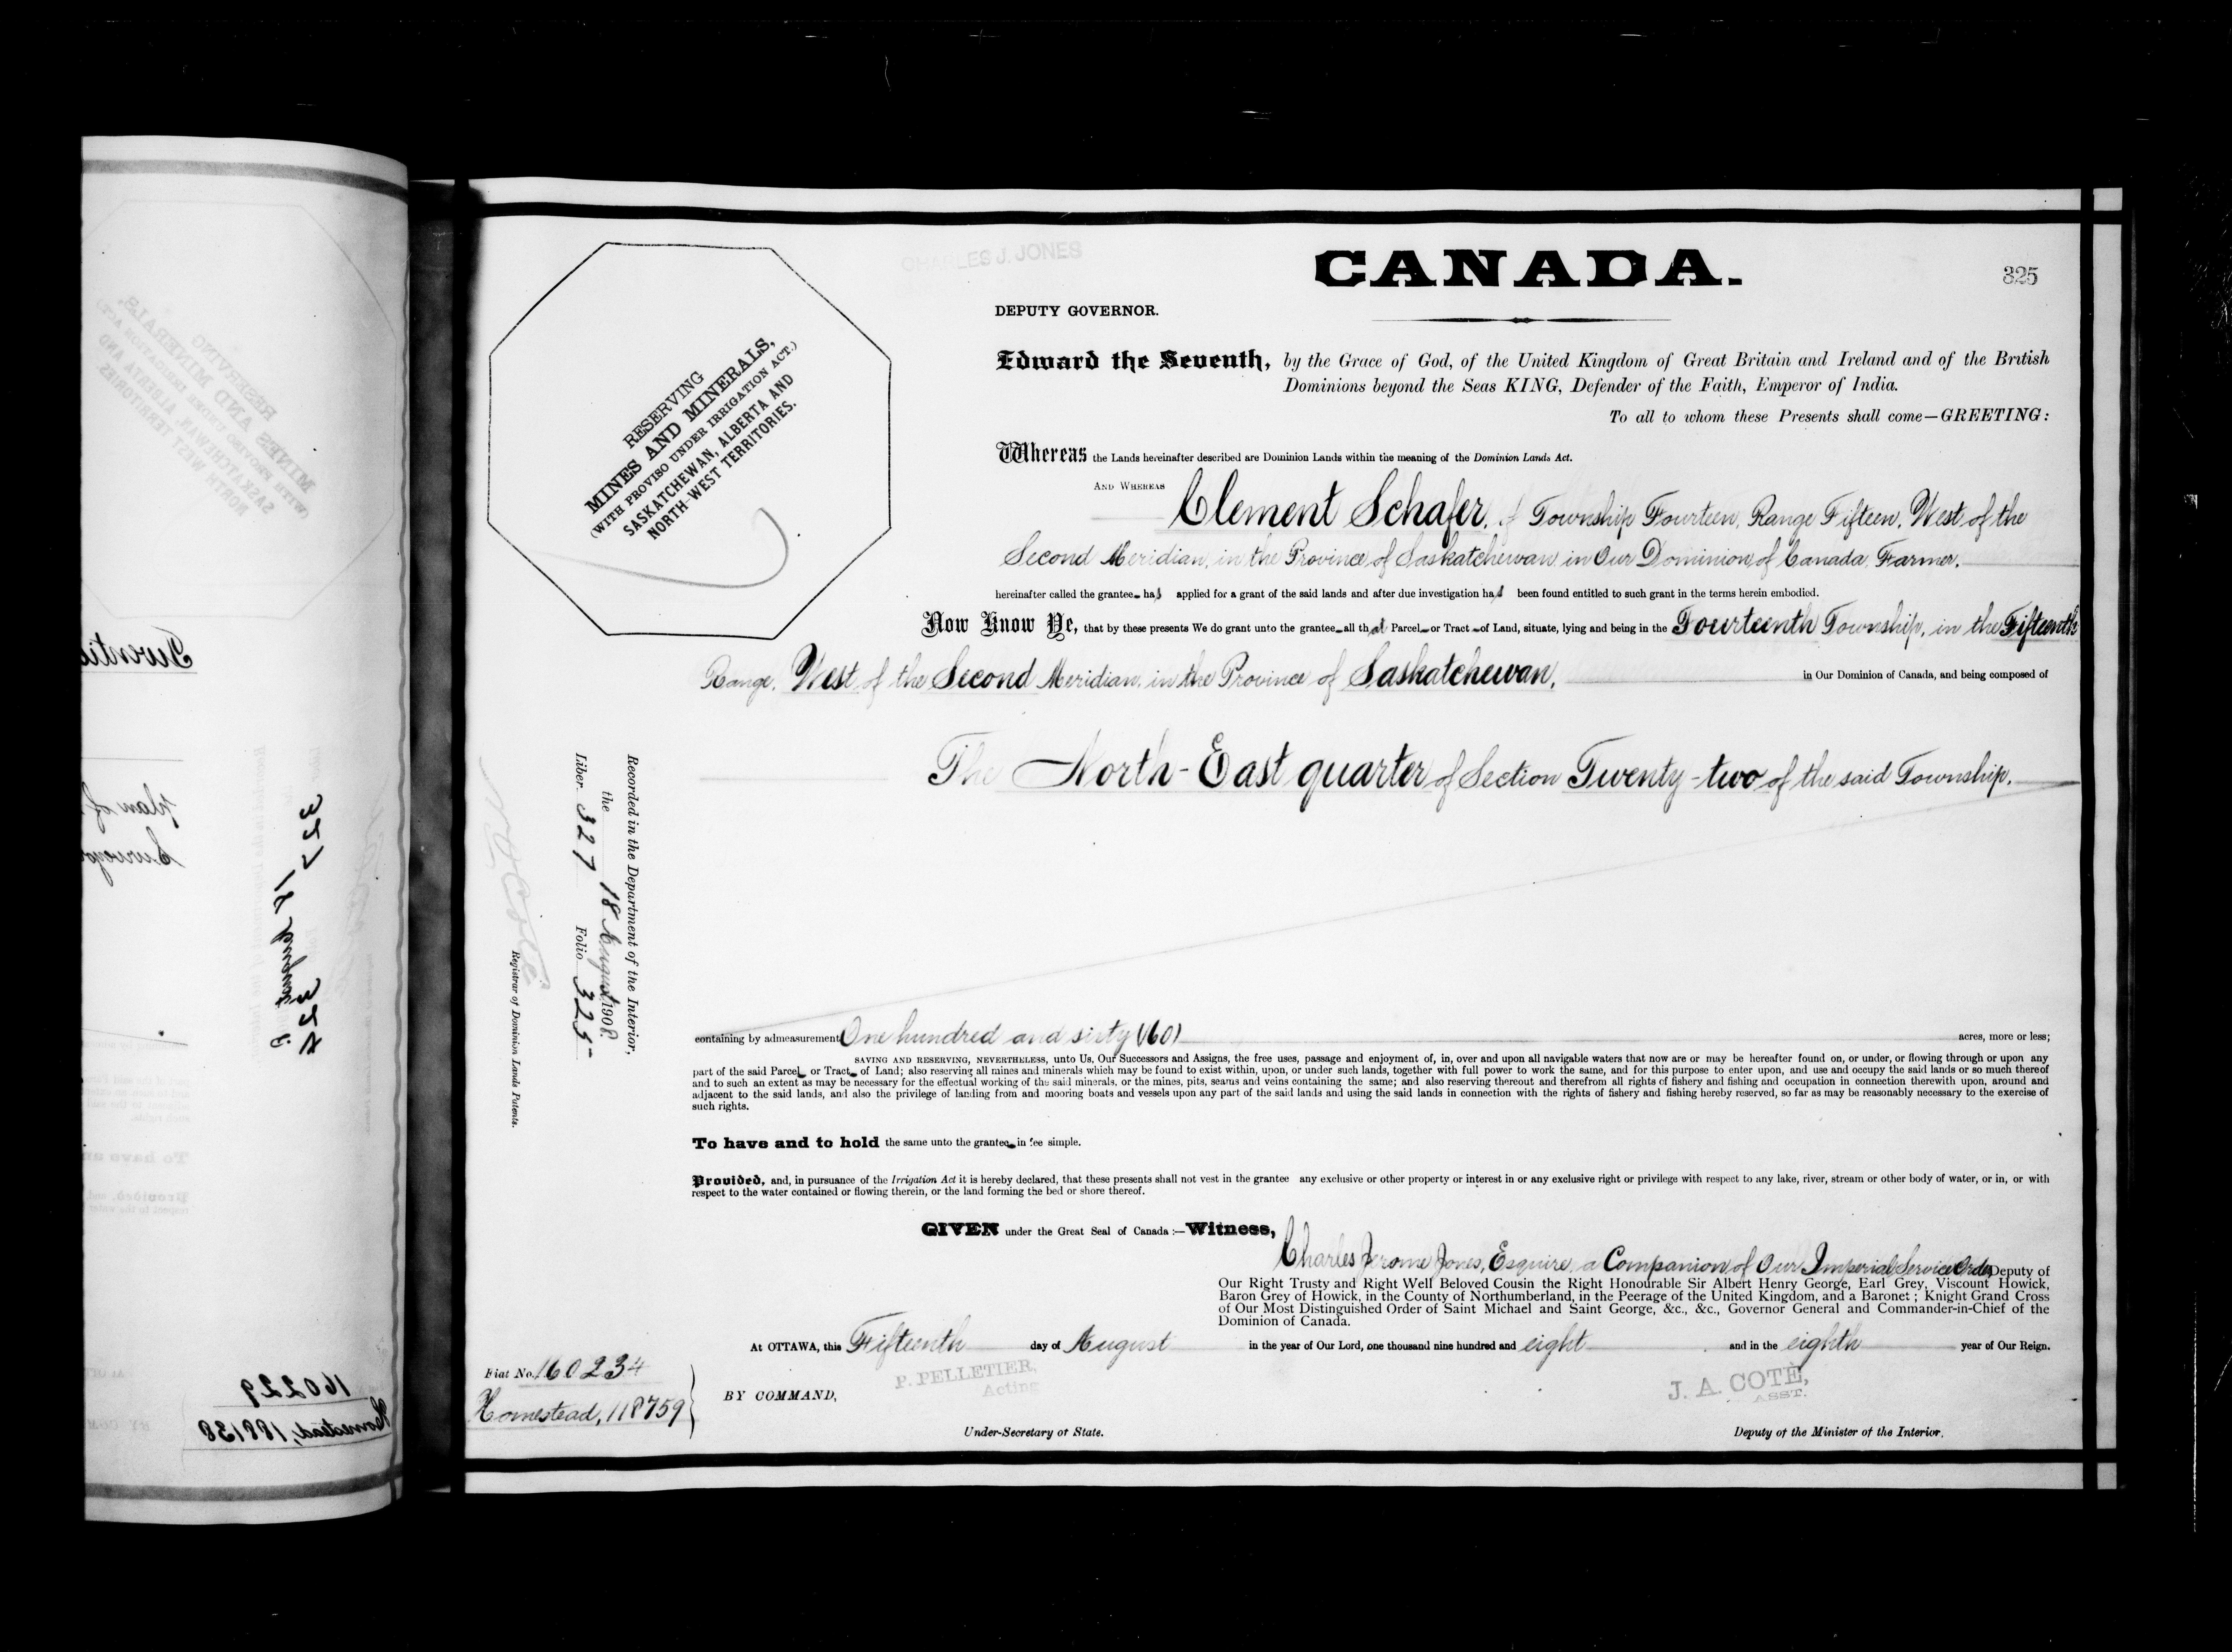 CHARLES J. JONES
CANADA.
325
DEPUTY GOVERNOR.
Edward the Seventh, by the Grace of God, of the United Kingdom of Great Britain and Ireland and of the British
Dominions beyond the Seas KING, Defender of the Faith, Emperor of India.
To all to whom these Presents shall come—GREETING:
RESERVING
MINES AND MINERALS,
(WITH PROVISO UNDER IRRIGATION ACT.)
SASKATCHEWAN, ALBERTA AND
NORTH-WEST TERRITORIES.
Whereas the Lands hereinafter described are Dominion Lands within the meaning of the Dominion Lands Act.
AND WHEREAS
Clement Schafer, of Township Fourteen, Range Fifteen, West of the
Second Meridian, in the Province of Saskatchewan in Our Dominion of Canada, Farmer.
hereinafter called the grantee has applied for a grant of the said lands and after due investigation has been found entitled to such grant in the terms herein embodied.
Now Know Ye, that by these presents We do grant unto the grantee all that Parcel or Tract of Land, situate, lying and being in the Fourteenth Township, in the Fifteenth
Range, West of the Second Meridian, in the Province of Saskatchewan, in Our Dominion of Canada, and being composed of
The North-East quarter of Section Twenty-two of the said Township.
Recorded in the Department of the Interior,
the 18 August 1908.
Liber 327 Folio 325
N O Coté
Registrar of Dominion Lands Patents.
containing by admeasurement One hundred and sixty (160) acres, more or less;
SAVING AND RESERVING, NEVERTHELESS, unto Us, Our Successors and Assigns, the free uses, passage and enjoyment of, in, over and upon all navigable waters that now are or may be hereafter found on, or under, or flowing through or upon any
part of the said Parcel or Tract of Land; also reserving all mines and minerals which may be found to exist within, upon, or under such lands, together with full power to work the same, and for this purpose to enter upon, and use and occupy the said lands or so much thereof
and to such an extent as may be necessary for the effectual working of the said minerals, or the mines, pits, seams and veins containing the same; and also reserving thereout and therefrom all rights of fishery and fishing and occupation in connection therewith upon, around and
adjacent to the said lands, and also the privilege of landing from and mooring boats and vessels upon any part of the said lands and using the said lands in connection with the rights of fishery and fishing hereby reserved, so far as may be reasonably necessary to the exercise of
such rights.
To have and to hold the same unto the grantee in fee simple.
Provided, and, in pursuance of the Irrigation Act it is hereby declared, that these presents shall not vest in the grantee any exclusive or other property or interest in or any exclusive right or privilege with respect to any lake, river, stream or other body of water, or in, or with
respect to the water contained or flowing therein, or the land forming the bed or shore thereof.
GIVEN under the Great Seal of Canada:—Witness,
Charles Jerome Jones, Esquire, a Companion of Our Imperial Service Order Deputy of
Our Right Trusty and Right Well Beloved Cousin the Right Honourable Sir Albert Henry George, Earl Grey, Viscount Howick,
Baron Grey of Howick, in the County of Northumberland, in the Peerage of the United Kingdom, and a Baronet; Knight Grand Cross
of Our Most Distinguished Order of Saint Michael and Saint George, &c., &c., Governor General and Commander-in-Chief of the
Dominion of Canada.
At OTTAWA, this Fifteenth day of August in the year of Our Lord, one thousand nine hundred and eight and in the eighth year of Our Reign.
Fiat No. 160234
Homestead, 118759
BY COMMAND,
P. PELLETIER,
Acting
Under-Secretary of State.
J. A. COTÉ,
ASST.
Deputy of the Minister of the Interior.
160229
Homestead, 188138